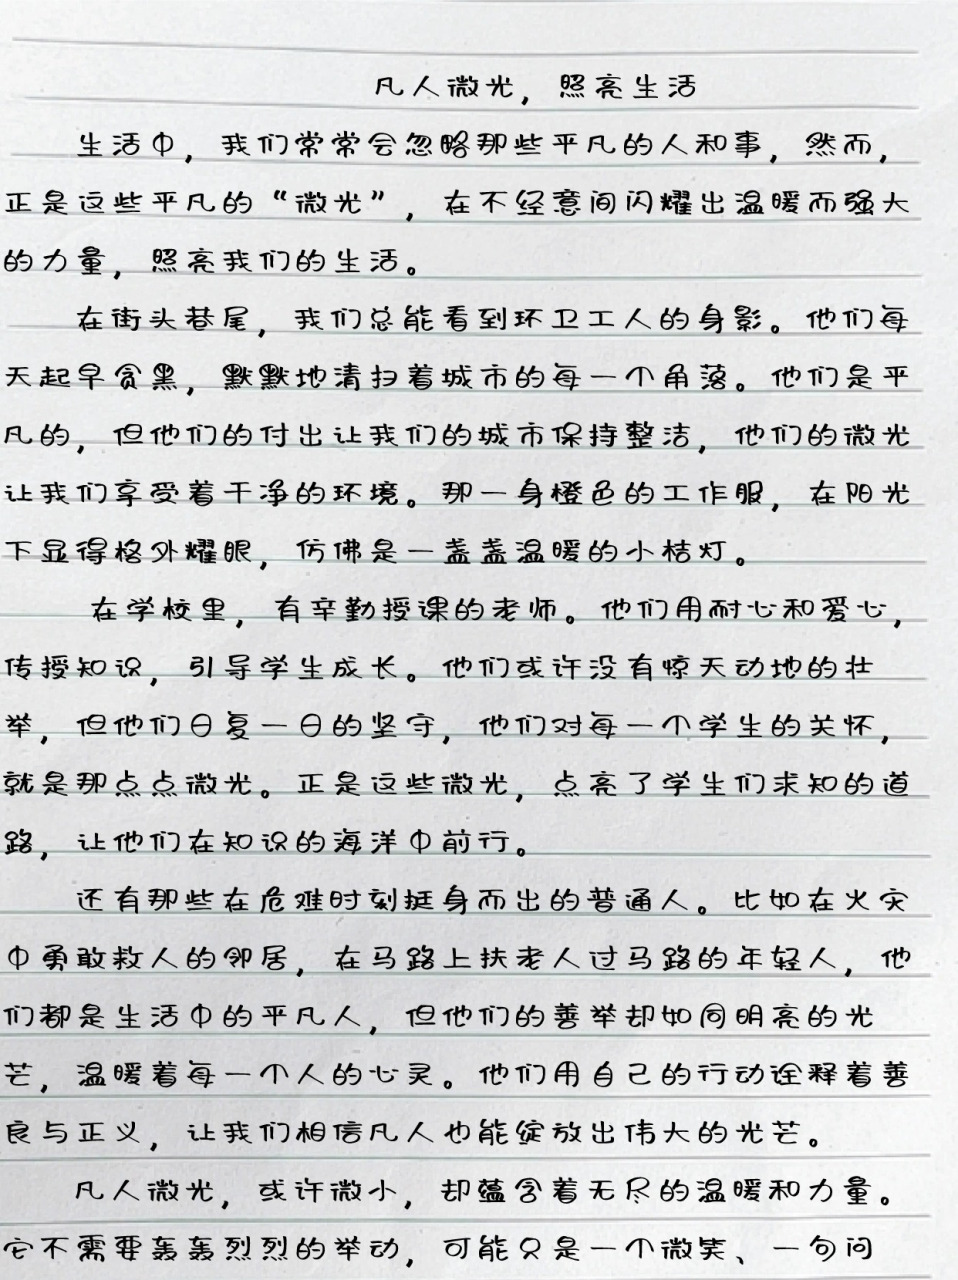 凡人微光，照亮生活
生活中，我们常常会忽略那些平凡的人和事，然而，
正是这些平凡的“微光”，在不经意间闪耀出温暖而强大
的力量，照亮我们的生活。
在街头巷尾，我们总能看到环卫工人的身影。他们每
天起早贪黑，默默地清扫着城市的每一个角落。他们是平
凡的，但他们的付出让我们的城市保持整洁，他们的微光
让我们享受着干净的环境。那一身橙色的工作服，在阳光
下显得格外耀眼，仿佛是一盏盏温暖的小桔灯。
在学校里，有辛勤授课的老师。他们用耐心和爱心，
传授知识，引导学生成长。他们或许没有惊天动地的壮
举，但他们日复一日的坚守，他们对每一个学生的关怀，
就是那点点微光。正是这些微光，点亮了学生们求知的道
路，让他们在知识的海洋中前行。
还有那些在危难时刻挺身而出的普通人。比如在火灾
中勇敢救人的邻居，在马路上扶老人过马路的年轻人，他
们都是生活中的平凡人，但他们的善举却如同明亮的光
芒，温暖着每一个人的心灵。他们用自己的行动诠释着善
良与正义，让我们相信凡人也能绽放出伟大的光芒。
凡人微光，或许微小，却蕴含着无尽的温暖和力量。
它不需要轰轰烈烈的举动，可能只是一个微笑、一句问